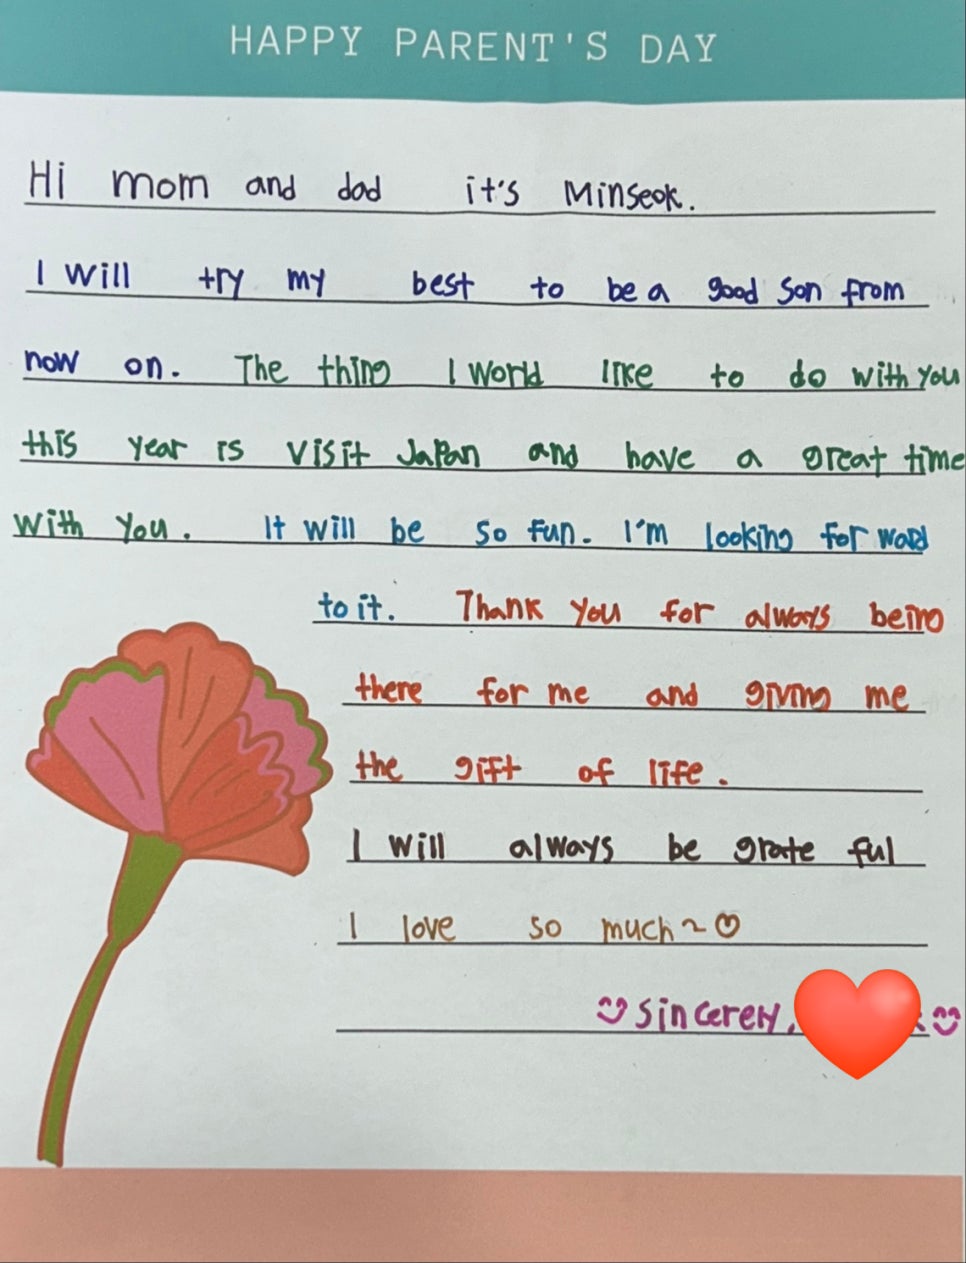 HAPPY PARENT'S DAY
Hi mom and dad it's Minseok.
I will try my best to be a good son from
now on. The thing I world like to do with you
this year is visit Japan and have a great time
with you. It will be so fun. I'm looking for word
to it. Thank you for always being
there for me and giving me
the gift of life.
I will always be grate ful
I love so much~♡
sincerely,